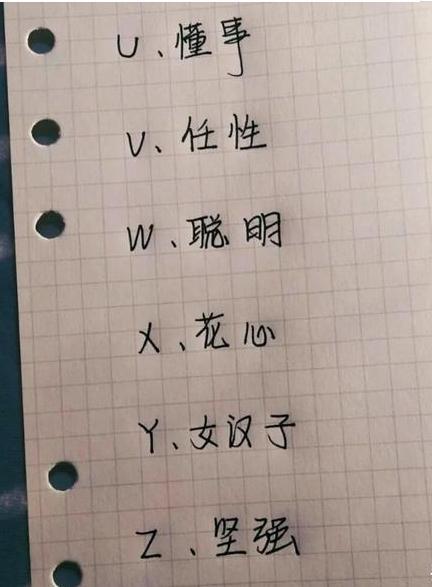 U、懂事
V、任性
W、聪明
X、花心
Y、女汉子
Z、坚强